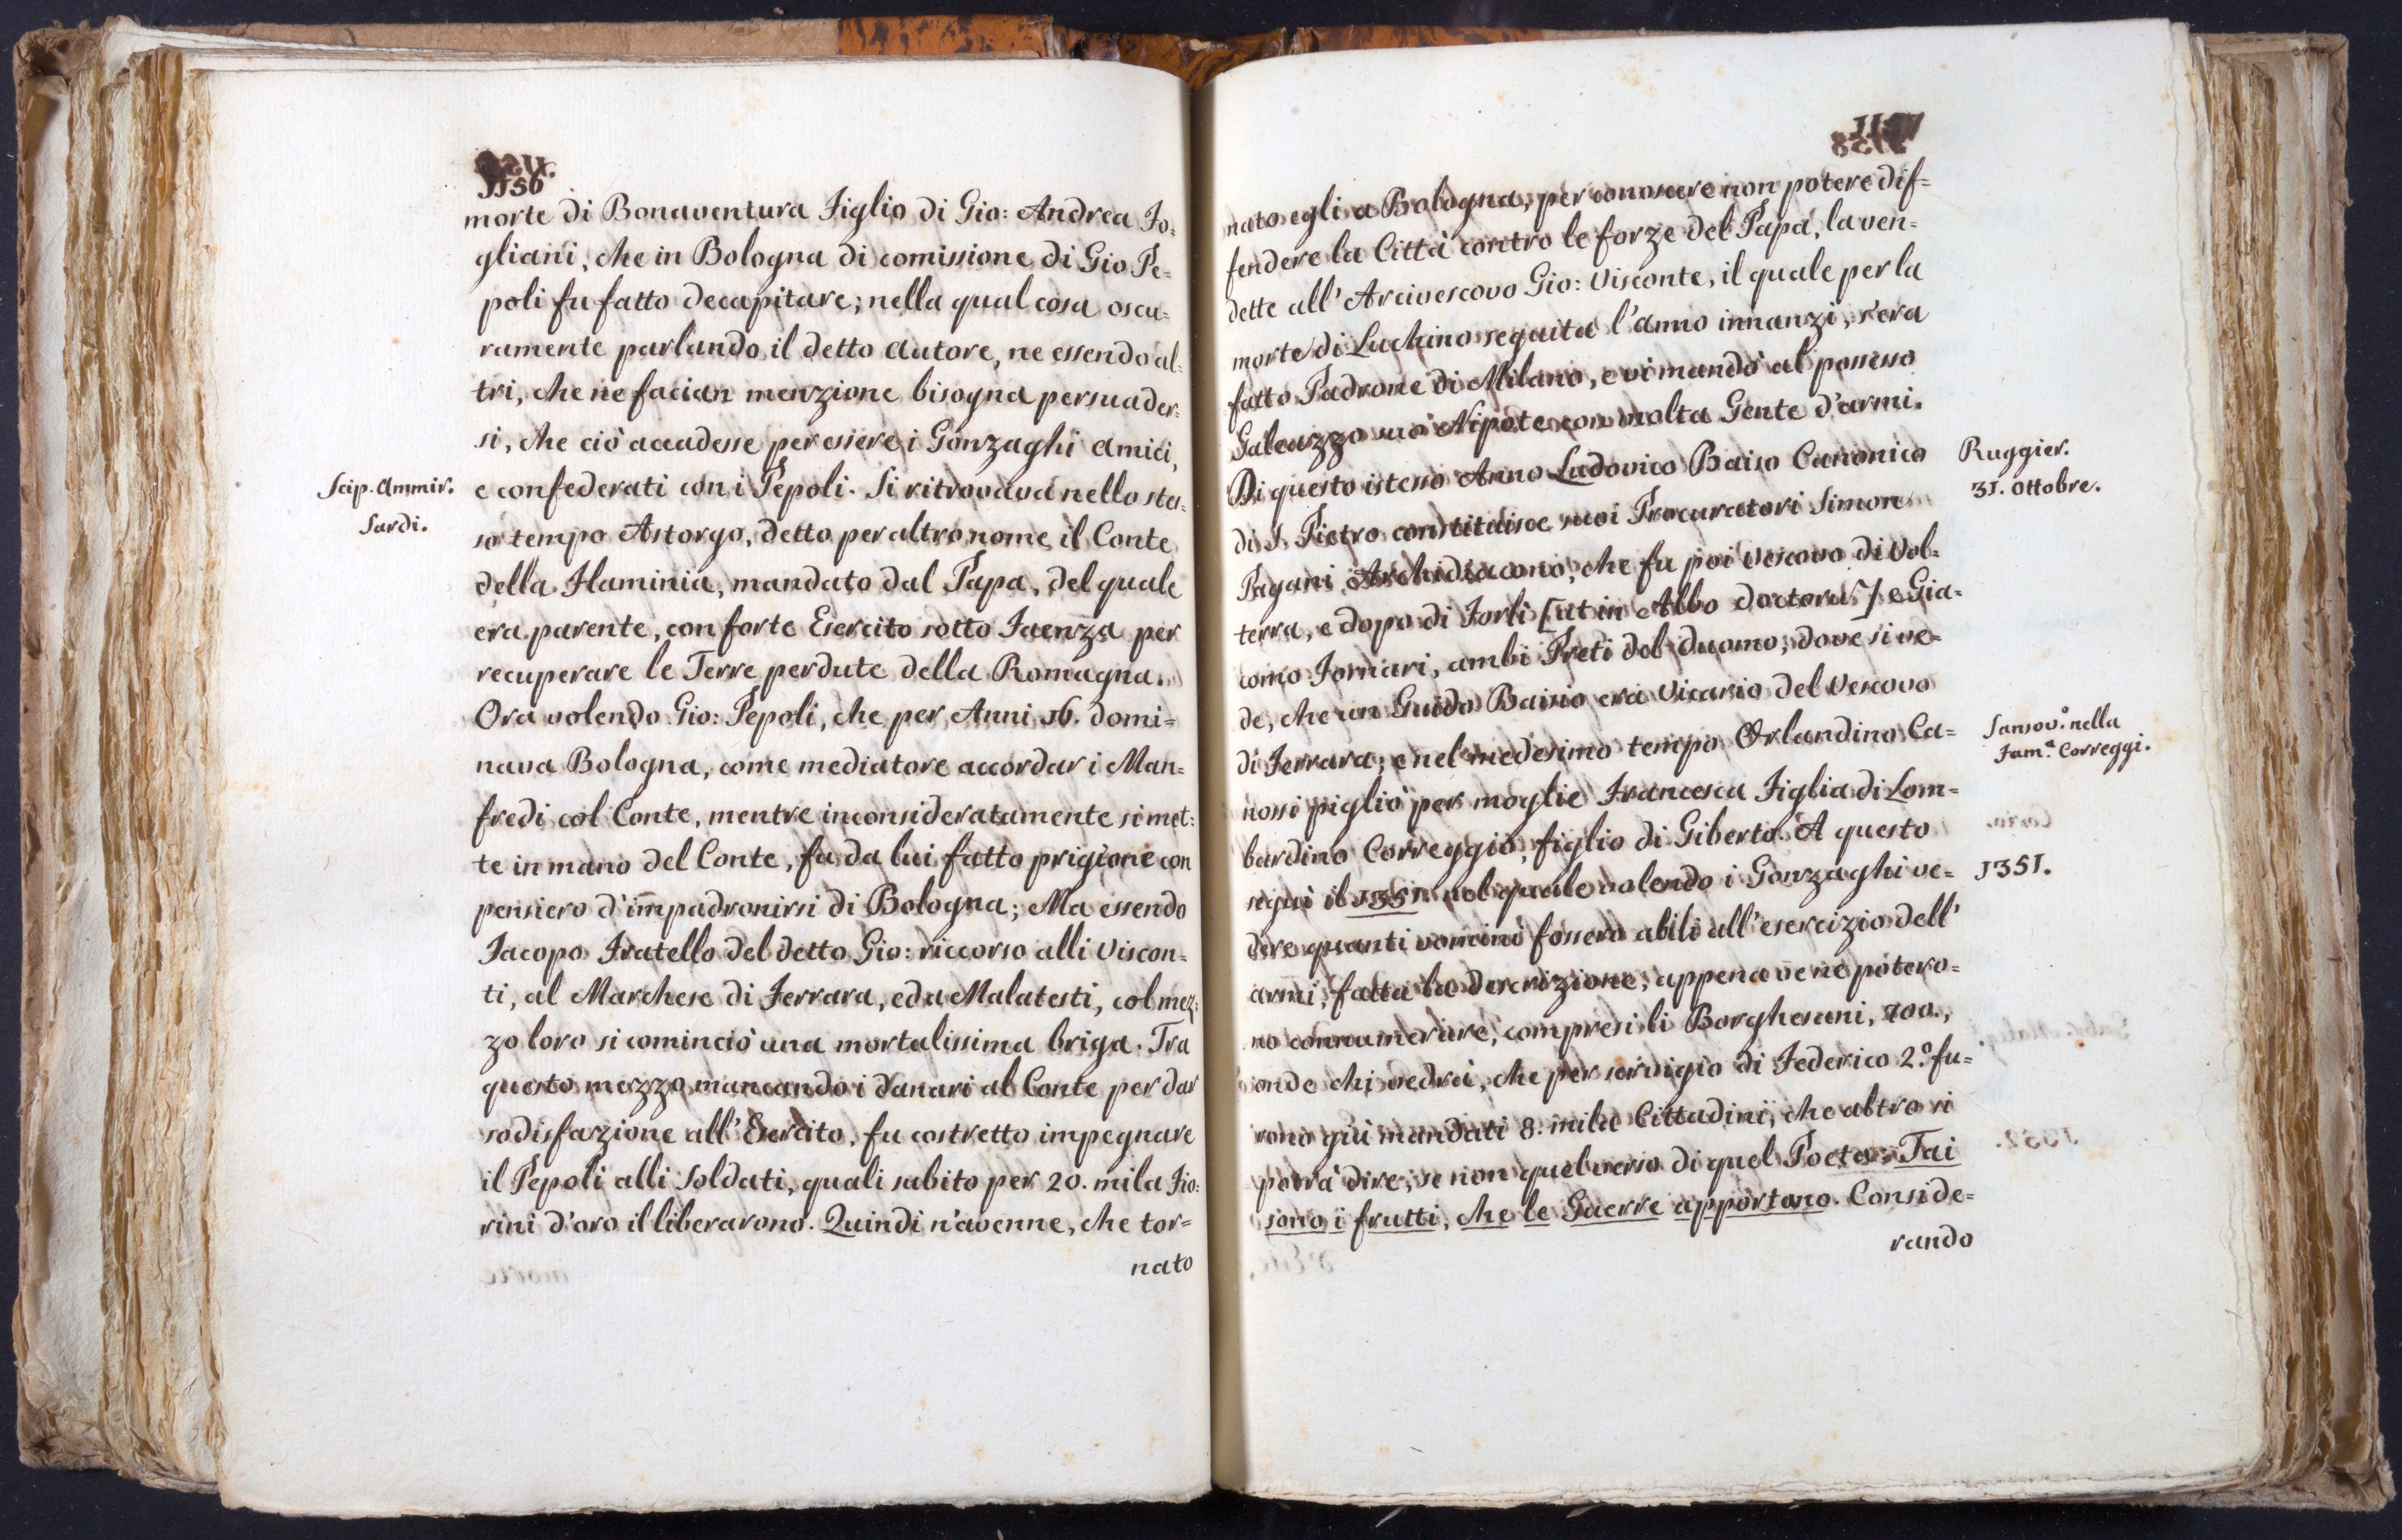 1156
morte di Bonaventura Figlio di Gio: Andrea Fo=
gliani, che in Bologna di comissione di Gio Pe=
poli fu fatto decapitare; nella qual cosa oscu=
ramente parlando il detto Autore, ne essendo al=
tri, che ne facian menzione bisogna persuader=
si, che ciò accadesse per essere i Gonzaghi Amici,
Scip. Ammir.
Sardi.
e confederati con i Pepoli. Si ritrovava nello stes=
so tempo Astorgo, detto per altro nome il Conte
della Flaminia, mandato dal Papa, del quale
era parente, con forte Esercito sotto Faenza per
recuperare le Terre perdute della Romagna.
Ora volendo Gio: Pepoli, che per Anni 16. domi=
nava Bologna, come mediatore accordar i Man=
fredi col Conte, mentre inconsideratamente si met=
te in mano del Conte, fu da lui fatto prigione con
pensiero d'impadronirsi di Bologna; Ma essendo
Jacopo Fratello del detto Gio: riccorso alli Viscon=
ti, al Marchese di Ferrara, ed a Malatesti, col mez=
zo loro si cominciò una mortalissima briga. Tra
questo mezzo mancando i danari al Conte per dar
sodisfazione all'Esercito, fu costretto impegnare
il Pepoli alli Soldati, quali subito per 20. mila Fio=
rini d'oro il liberarono. Quindi n'avenne, che tor=
nato
1157
nato egli a Bologna, per conoscere non potere dif=
fendere la Città contro le forze del Papa, la ven=
dette all'Arcivescovo Gio: Visconte, il quale per la
morte di Luchino seguita l'anno innanzi, s'era
fatto Padrone di Milano, e vi mandò al possesso
Galeazzo suo Nipote con molta Gente d'armi.
Ruggier.
31. Ottobre.
Di questo istesso Anno Ludovico Baiso Canonico
di S. Pietro constituisce suoi Procuratori Simon
Pagani Archidiacono, che fu poi Vescovo di Vol=
terra, e dopo di Forlì [ut in Albo doctorus] e Gia=
como Fornari, ambi Preti del Duomo; dove si ve=
de, che un Guido Baisio era Vicario del Vescovo
Sansov.º nella
Fam.ª Correggi.
di Ferrara; e nel medesimo tempo Orlandino Ca=
nossi pigliò per moglie Francesca Figlia di Lom=
bardino Correggio, figlio di Giberto. A questo
1351.
seguì il 1351. nel quale volendo i Gonzaghi ve=
dere quanti uomini fossero abili all'esercizio dell'
armi, fatta la descrizione, appena ve ne potero=
no connumerare, compresi li Borghesani, 700.,
onde chi vedrà, che per servigio di Federico 2.º fu=
rono qui mandati 8. mila Cittadini, che altro si
potrà dire, se non quel verso di quel Poeta: Tai
sono i frutti, che le Guerre apportano. Conside=
rando